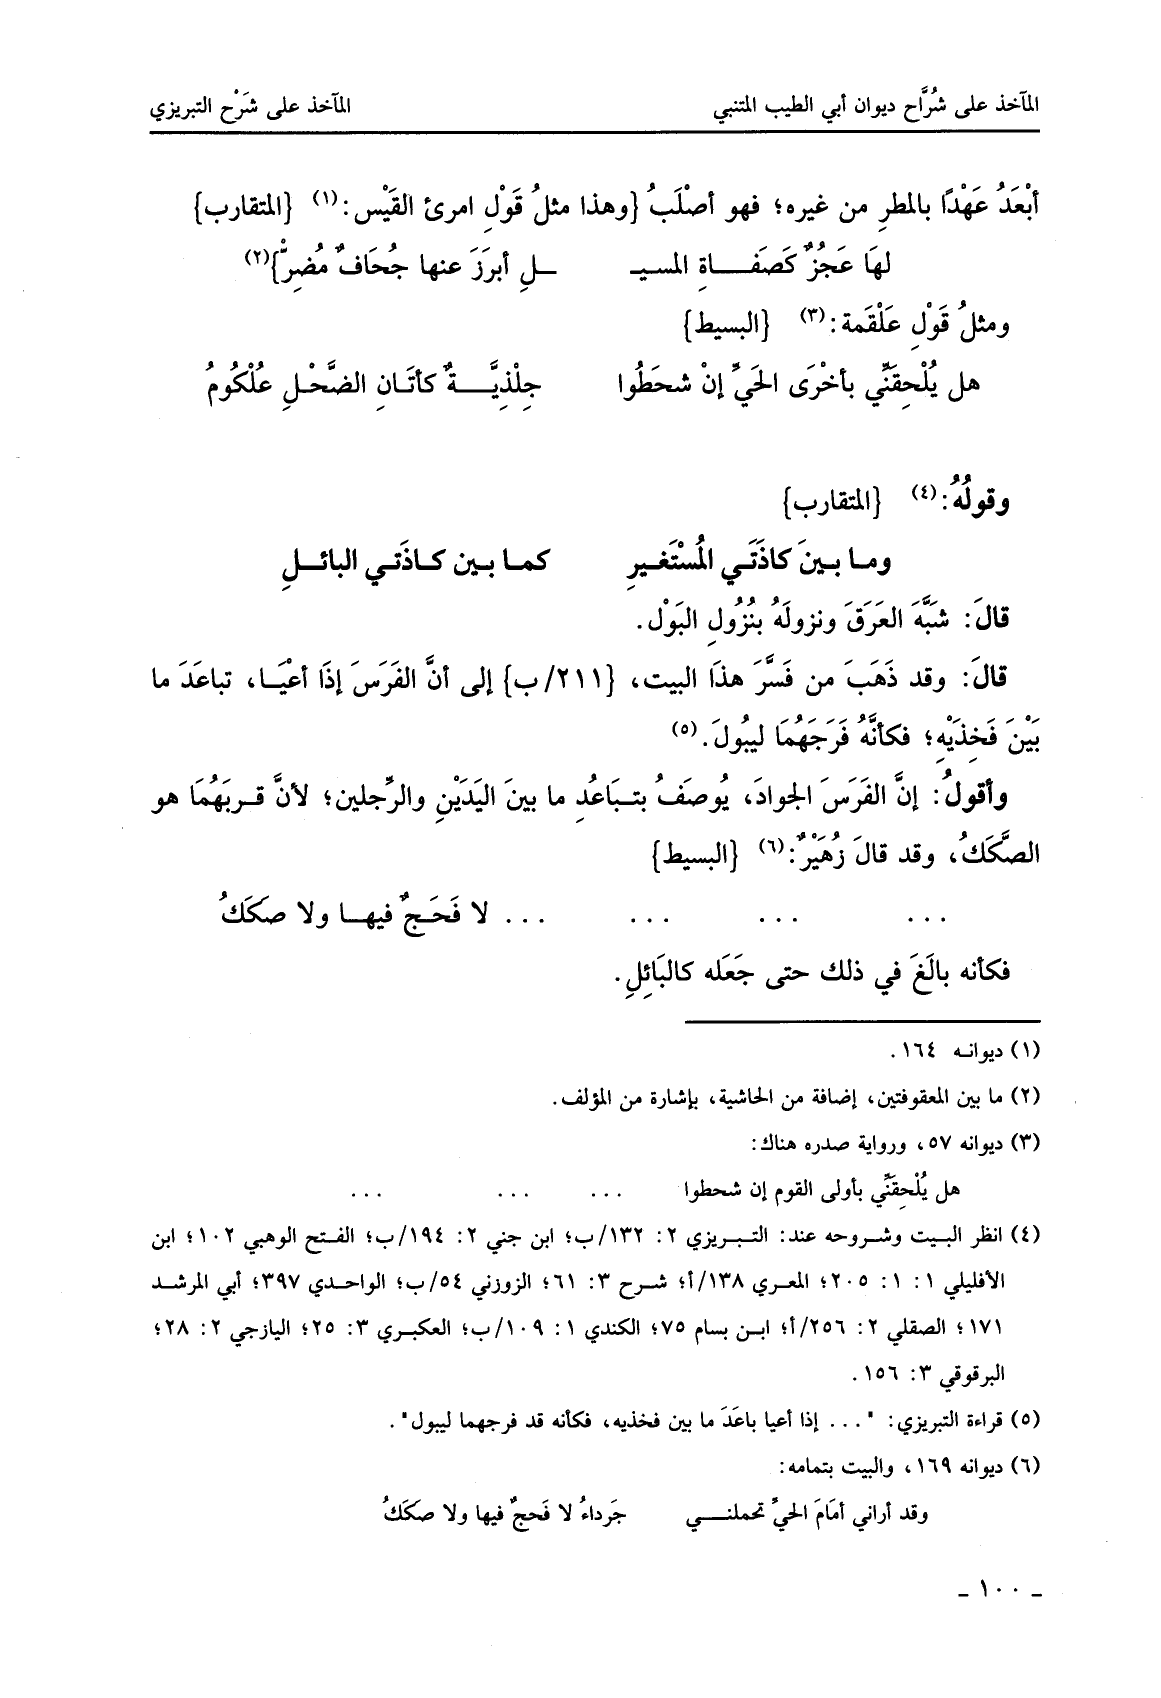 المآخذ على شُرَّاح ديوان أبي الطيب المتنبي المآخذ على شَرْح التبريزي
أبْعَدُ عَهْدًا بالمطرِ من غيره؛ فهو أصْلَبُ {وهذا مثلُ قَوْلِ امرئ القَيْس:(١) {المتقارب}
لهَا عَجُزٌ كَصَفَـــاةِ المسيـ ـــلِ أبرَزَ عنها جُحَافٌ مُضِرّْ}(٢)
ومثلُ قَوْلِ عَلْقَمة:(٣) {البسيط}
هل يُلْحِقَنِّي بأخْرَى الحَيِّ إنْ شحَطُوا جِلْذِيَّـــةٌ كأتَـانِ الضَّحْـلِ عُلْكُومُ
وقولُهُ:(٤) {المتقارب}
ومـا بـينَ كاذَتَـي المُسْتَغيرِ كمـا بـين كـاذَتي البائـلِ
قالَ: شبَّهَ العَرَقَ ونزولَهُ بنُزُولِ البَوْل.
قالَ: وقد ذَهَبَ من فَسَّرَ هذَا البيت، {٢١١/ب} إلى أنَّ الفَرَسَ إذَا أعْيَـا، تباعَدَ ما
بَيْنَ فَخِذَيْهِ؛ فكأنَّهُ فَرَجَهُمَا ليبُولَ.(٥)
وأقولُ: إنَّ الفَرَسَ الجوادَ، يُوصَفُ بتـبَاعُدِ ما بينَ اليَدَيْنِ والرِّجلين؛ لأنَّ قـربَهُمَا هو
الصَّكَكُ، وقد قالَ زُهَيْرٌ:(٦) {البسيط}
... ... ... ... لا فَحَـجٌ فيهـا ولا صكَكُ
فكأنه بالَغَ في ذلك حتى جَعَله كالبَائِلِ.
(١) ديوانه ١٦٤.
(٢) ما بين المعقوفتين، إضافة من الحاشية، بإشارة من المؤلف.
(٣) ديوانه ٥٧، ورواية صدره هناك:
هل يُلْحِقَنِّي بأولى القوم إن شحطوا ... ... ...
(٤) انظر البيت وشروحه عند: التـبريزي ٢: ١٣٢/ب؛ ابن جني ٢: ١٩٤/ب؛ الفتح الوهبي ١٠٢؛ ابن
الأفليلي ١: ١: ٢٠٥؛ المعري ١٣٨/أ؛ شرح ٣: ٦١؛ الزوزني ٥٤/ب؛ الواحدي ٣٩٧؛ أبي المرشد
١٧١؛ الصقلي ٢: ٢٥٦/أ؛ ابـن بسام ٧٥؛ الكندي ١: ١٠٩/ب؛ العكبري ٣: ٢٥؛ اليازجي ٢: ٢٨؛
البرقوقي ٣: ١٥٦.
(٥) قراءة التبريزي: "... إذا أعيا باعَدَ ما بين فخذيه، فكأنه قد فرجهما ليبول".
(٦) ديوانه ١٦٩، والبيت بتمامه:
وقد أراني أمَامَ الحيِّ تحملنـــي جَرداءُ لا فَحجٌ فيها ولا صكَكُ
- ١٠٠ -